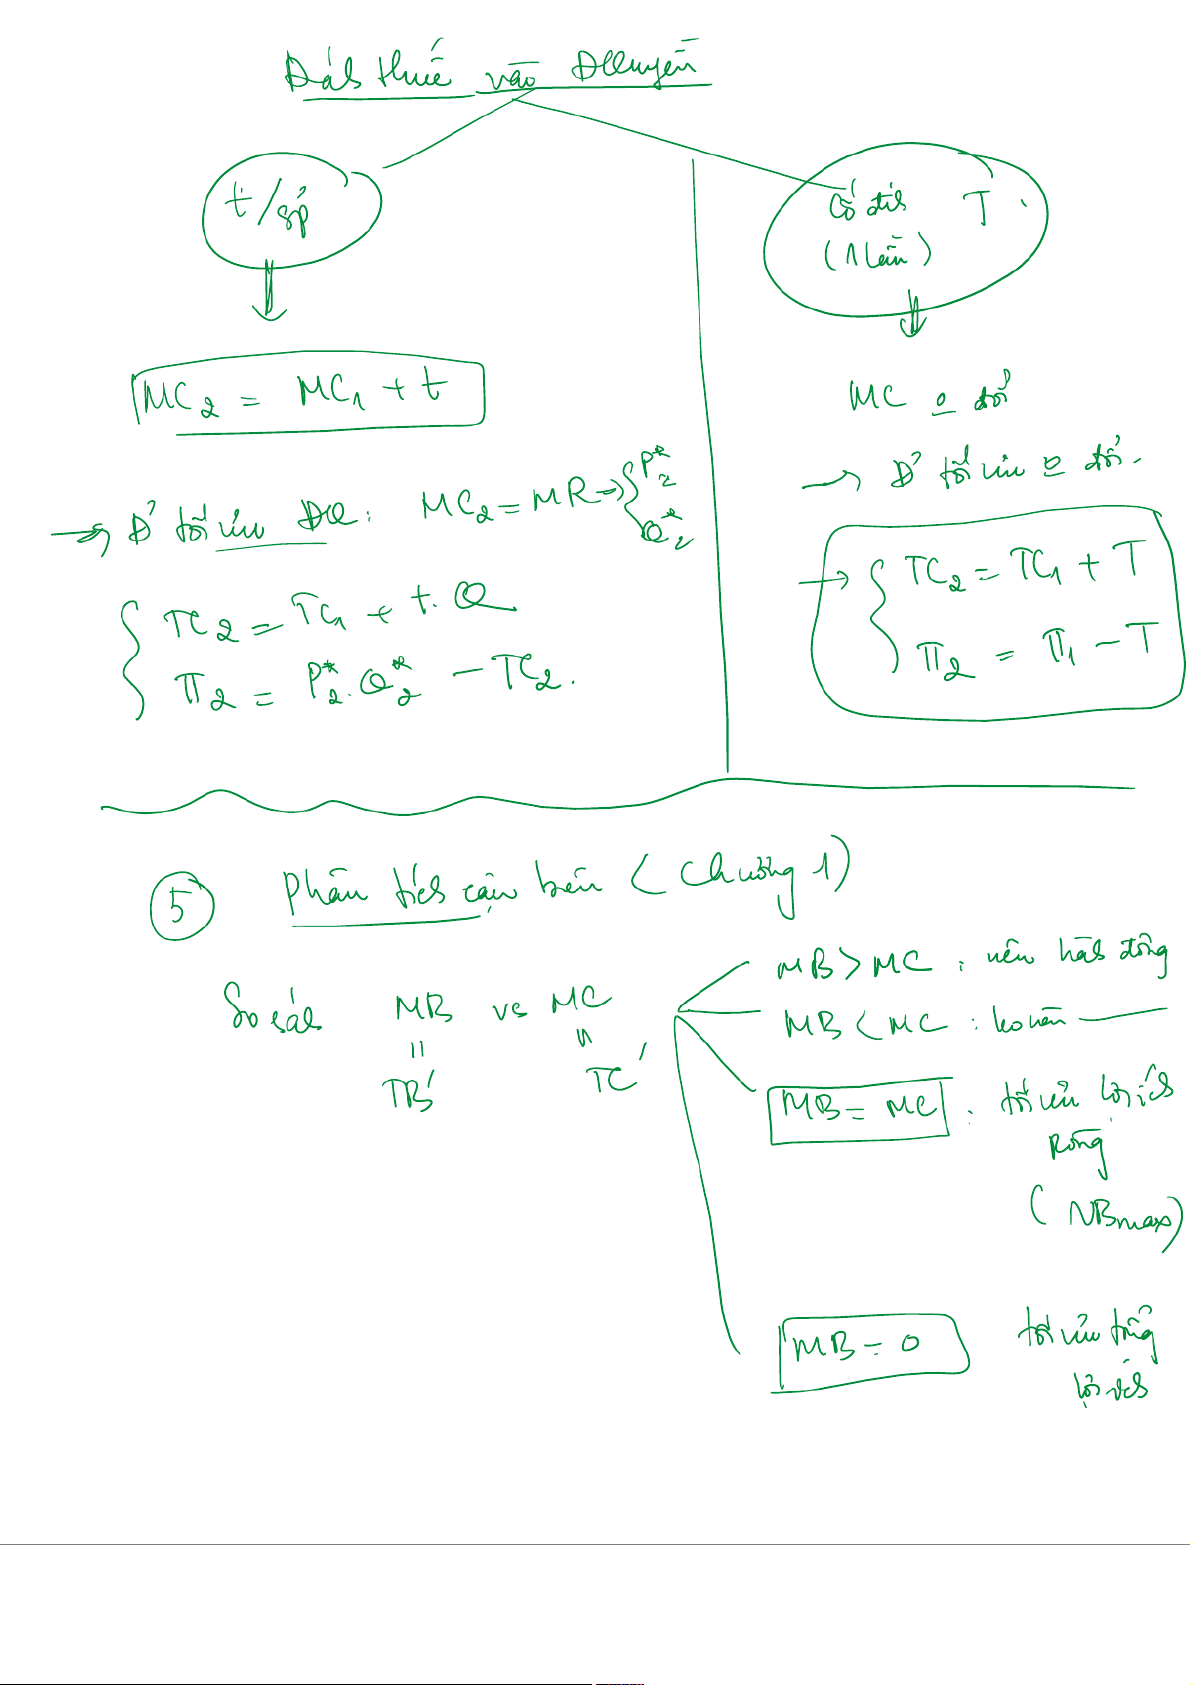 Đánh thuế vào ĐQuyền
t/sp
Cố định T
(1 lần)
MC₂ = MC₁ + t
→ Đ' tối ưu ĐQ: MC₂ = MR → { P₂*
Q₂*
{ TC₂ = TC₁ + t.Q
π₂ = P₂*.Q₂* - TC₂.
MC o đổi
→ Đ' tối ưu o đổi.
→ { TC₂ = TC₁ + T
π₂ = π₁ - T
5 Phân tích cận biên (Chương 1)
So sánh MB vs MC
= =
TB' TC'
MB > MC : nên hành động
MB < MC : ko nên —
MB = MC : tối ưu lợi ích
ròng
(NBmax)
MB = 0 tối ưu tổng
lợi ích